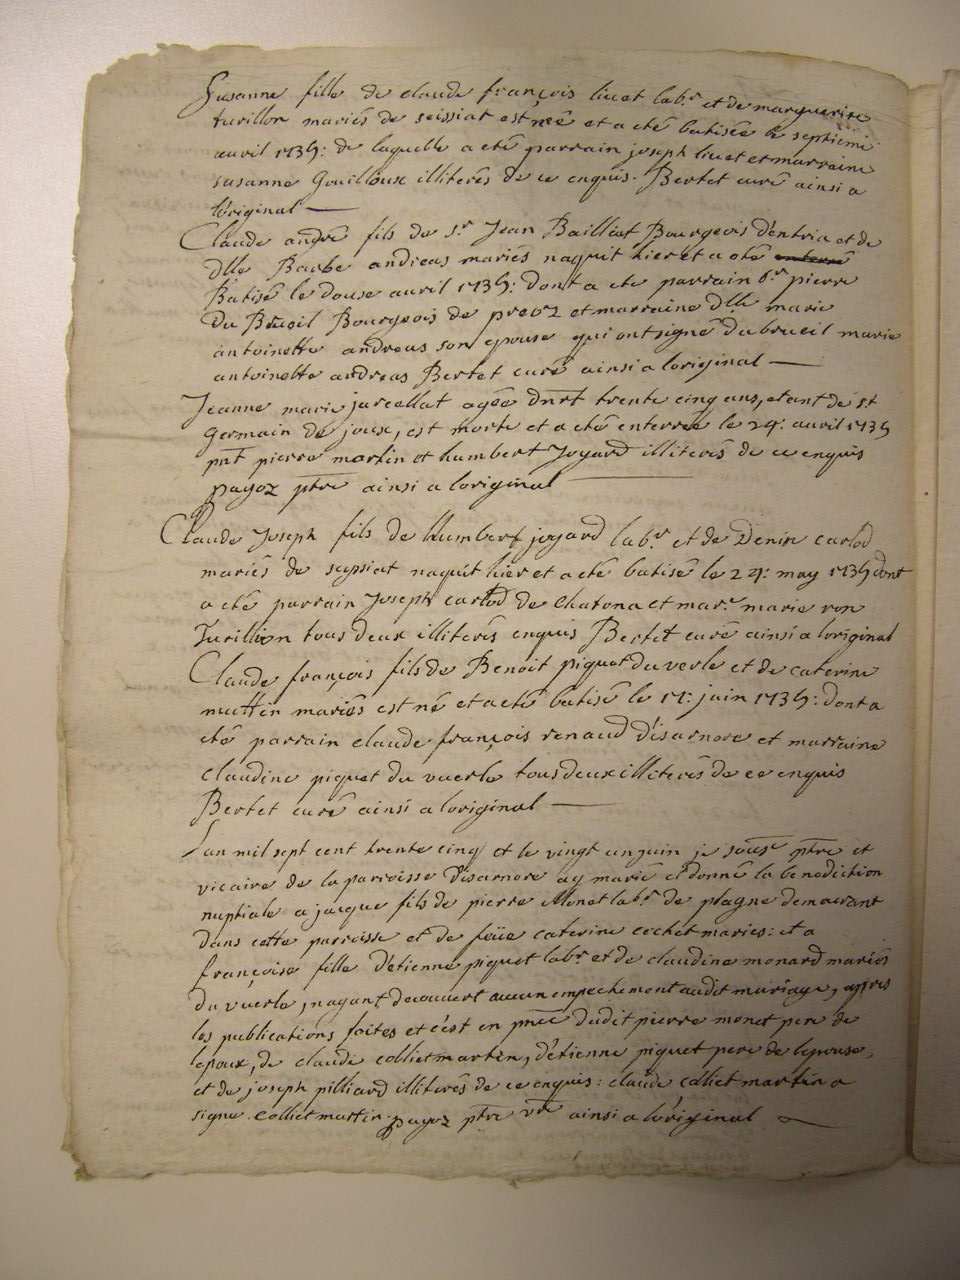 Susanne fille de claude françois livet lab.r et de marguerite
turillon mariés de seissiat est née et a eté batisée le septiemi
avril 1735: de laquelle a eté parrain joseph livet et marraine
susanne Gouilloux illiterés de ce enquis. Bertet curé ainsi a
l'original
Claude andré fils de s.r Jean Baillat Bourgeois d'entria et de
dlle Barbe andreas mariés naquit hier et a eté
Batisé le douse avril 1735: dont a ete parrain s.r pierre
Du Brueil Bourgeois de et marraine dlle marie
antoinette andreas son epouse qui ont signé du brueil marie
antoinette andreas Bertet curé ainsi a l'original
Jeanne marie jarcellat agée d'nrt trente cinq ans, etant de st
Germain de joux, est morte et a eté enterrée le 24: avril 1735
pnt pierre martin et humbert Joyard illiterés de ce enquis
pagoz ptre ainsi a loriginal
Claude Joseph fils de humbert joyard lab.r et de Denin carlod
mariés de naquit hier et a eté batisé le 24: may 1735 dont
a eté parrain Joseph carlod de Chatona et mar.e marie ron
Turillion tous deux illiterés enquis Bertet curé ainsi a loriginal
Claude françois fils de Benoit piquet du verle et de caterine
muttin mariés est né et a eté batisé le 11: juin 1735: dont a
eté parrain claude françois renaud d'isarnore et marraine
claudine piquet du vuerle tous deux illiterés de ce enquis
Bertet curé ainsi a loriginal
L'an mil sept cent trente cinq et le vingt un juin je souss.e ptre et
vicaire de la parroisse d'isarnore ay marié et donné la benediction
nuptiale a jacque fils de pierre Monet lab.r de plagne demeurant
dans cette parroisse et de feüe caterine cochet mariés: et a
françoise fille d'etienne piquet lab.r et de claudine monard mariés
du vuerle, n'ayant decouvert aucun empechement audit mariage, apres
les publications faites et c'est en pnce dudit pierre monet pere de
lepoux, de claude colliet martin, d'etienne piquet pere de lepouse,
et de joseph pilliard illiterés de ce enquis: claude colliet martin a
signe colliet martin pagoz ptre vre ainsi a l'original